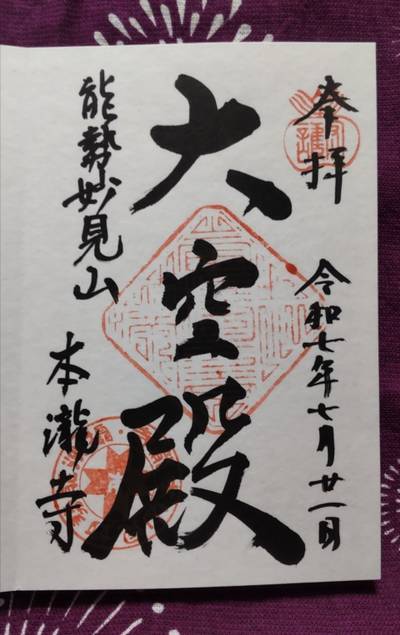 奉拝
令和七年七月廿一日
大空殿
能勢妙見山
本瀧寺